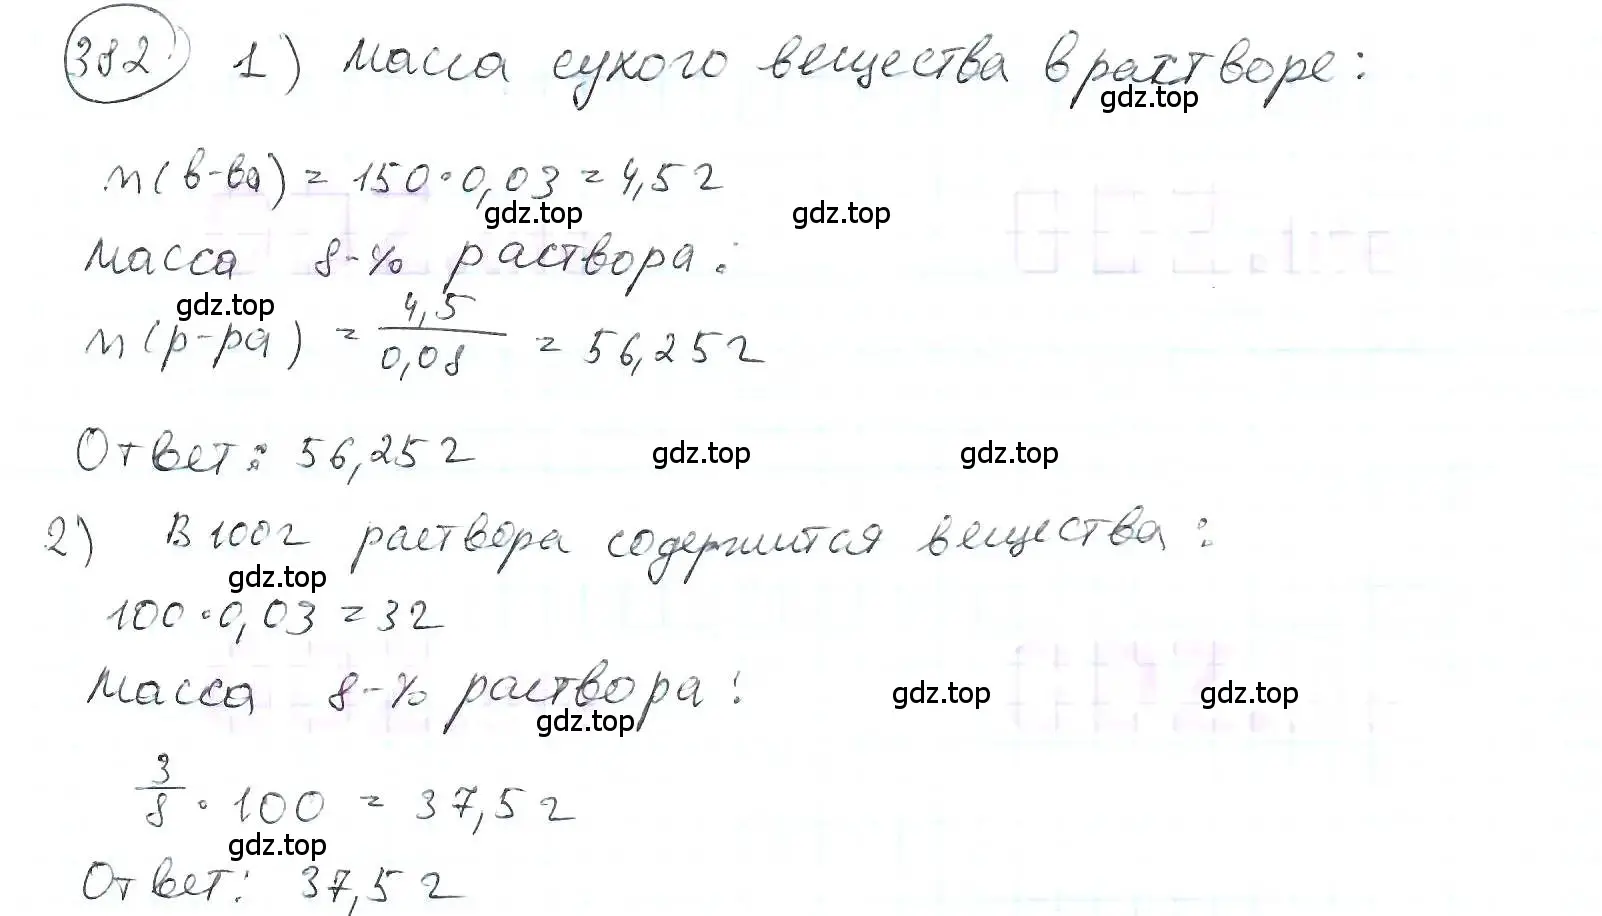 382. 1) Масса сухого вещества в растворе:
gdz.top
m(в-ва) = 150·0,03 = 4,5 г
gdz.top gdz.top
Масса 8-% раствора:
gdz.top
m(р-ра) = 4,5/0,08 = 56,25 г
Ответ: 56,25 г
gdz.top gdz.top
2) В 100 г раствора содержится вещества:
gdz.top
100·0,03 = 3 г
Масса 8-% раствора:
gdz.top gdz.top gdz.top
3/8 · 100 = 37,5 г
gdz.top
Ответ: 37,5 г